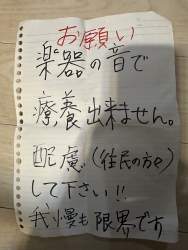 お願い
楽器の音で
療養出来ません。
配慮(住民の方々)
して下さい!!
我慢も限界です